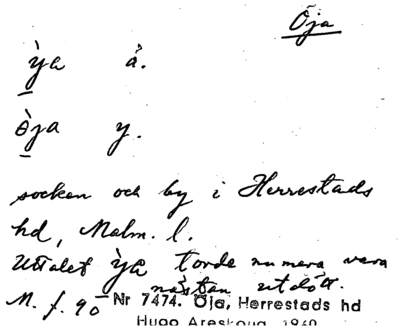 Öja
ỳa å.
ö̀ja y.
socken och by i Herrestads
hd, Malm. l.
Uttalet ỳa torde numera vara
nästan utdött.
M. f. 90 Nr 7474. Öja, Herrestads hd
Hugo Areskoug, 1940